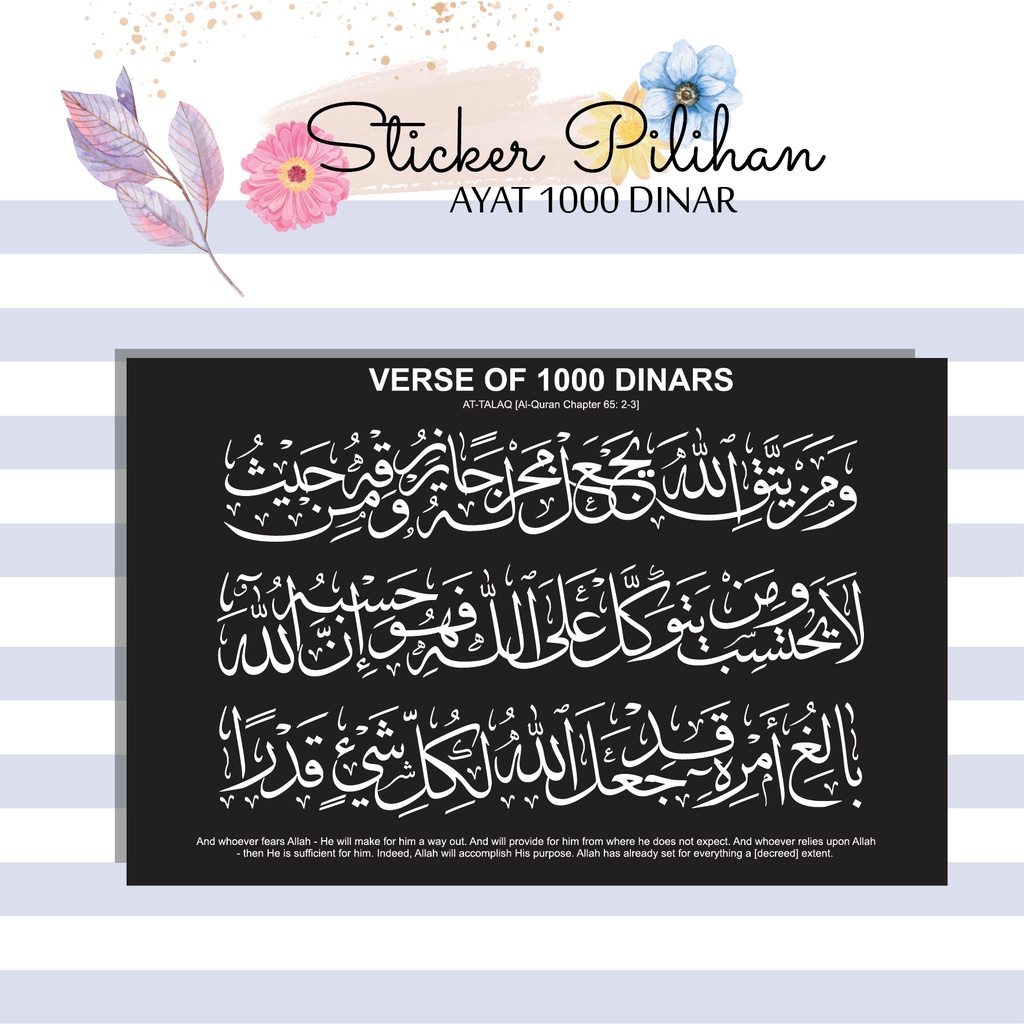 Sticker Pilihan
AYAT 1000 DINAR
VERSE OF 1000 DINARS
AT-TALAQ [Al-Quran Chapter 65: 2-3]
وَمَن يَتَّقِ ٱللَّهَ يَجْعَل لَّهُ مَخْرَجًا وَيَرْزُقْهُ مِنْ حَيْثُ
لَا يَحْتَسِبُ وَمَن يَتَوَكَّلْ عَلَى ٱللَّهِ فَهُوَ حَسْبُهُ إِنَّ ٱللَّهَ
بَالِغُ أَمْرِهِ قَدْ جَعَلَ ٱللَّهُ لِكُلِّ شَيْءٍ قَدْرًا
And whoever fears Allah - He will make for him a way out. And will provide for him from where he does not expect. And whoever relies upon Allah
- then He is sufficient for him. Indeed, Allah will accomplish His purpose. Allah has already set for everything a [decreed] extent.